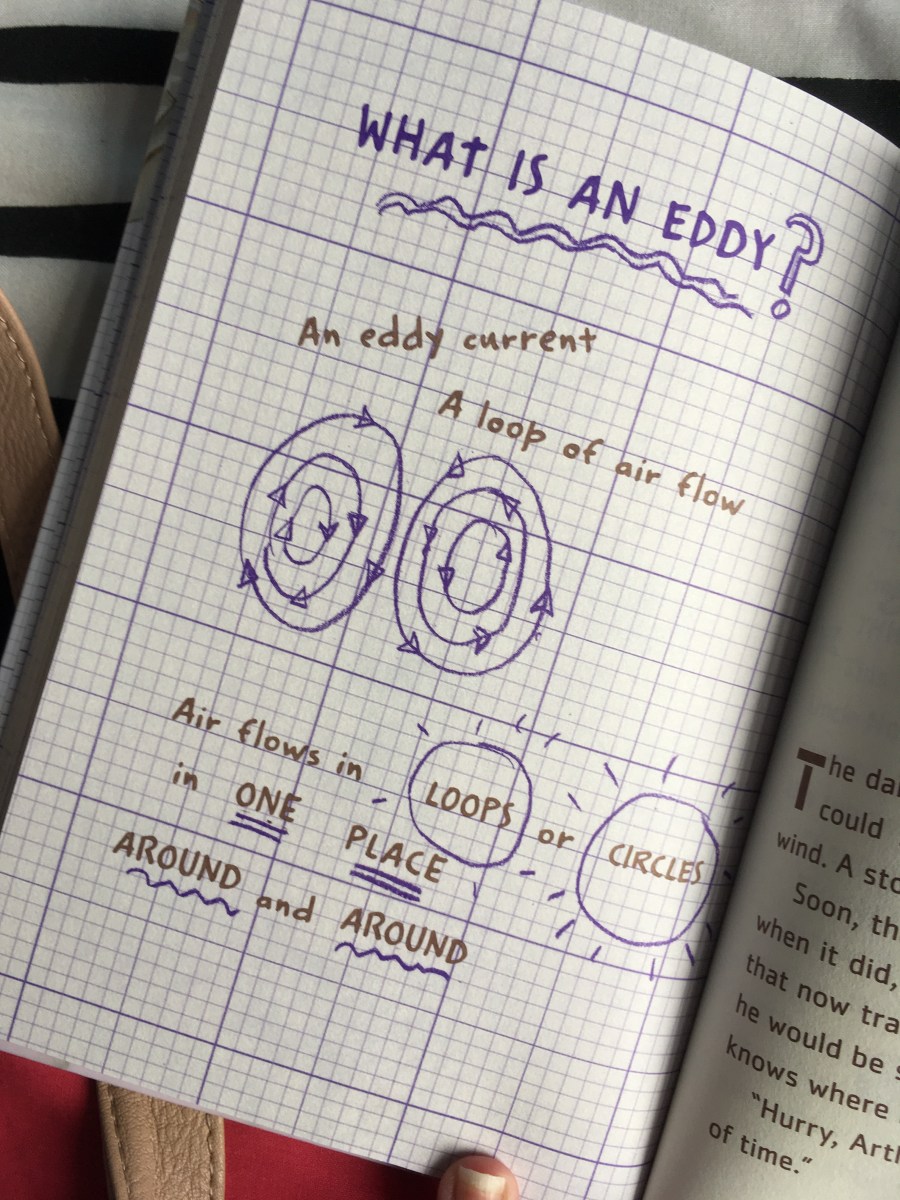 WHAT IS AN EDDY?
An eddy current
A loop of air flow
Air flows in LOOPS or CIRCLES
in ONE PLACE
AROUND and AROUND
The
could
wind. A
Soon,
when it did,
that now
he would be
knows where
"Hurry,
of time."